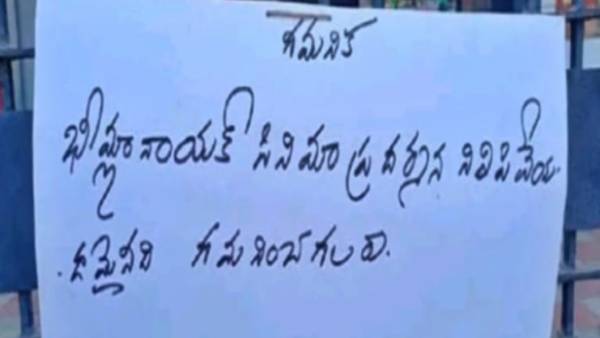 గమనిక
భీమ్లానాయక్ సినిమా ప్రదర్శన నిలిపివేయ
డమైనది గమనించగలరు.